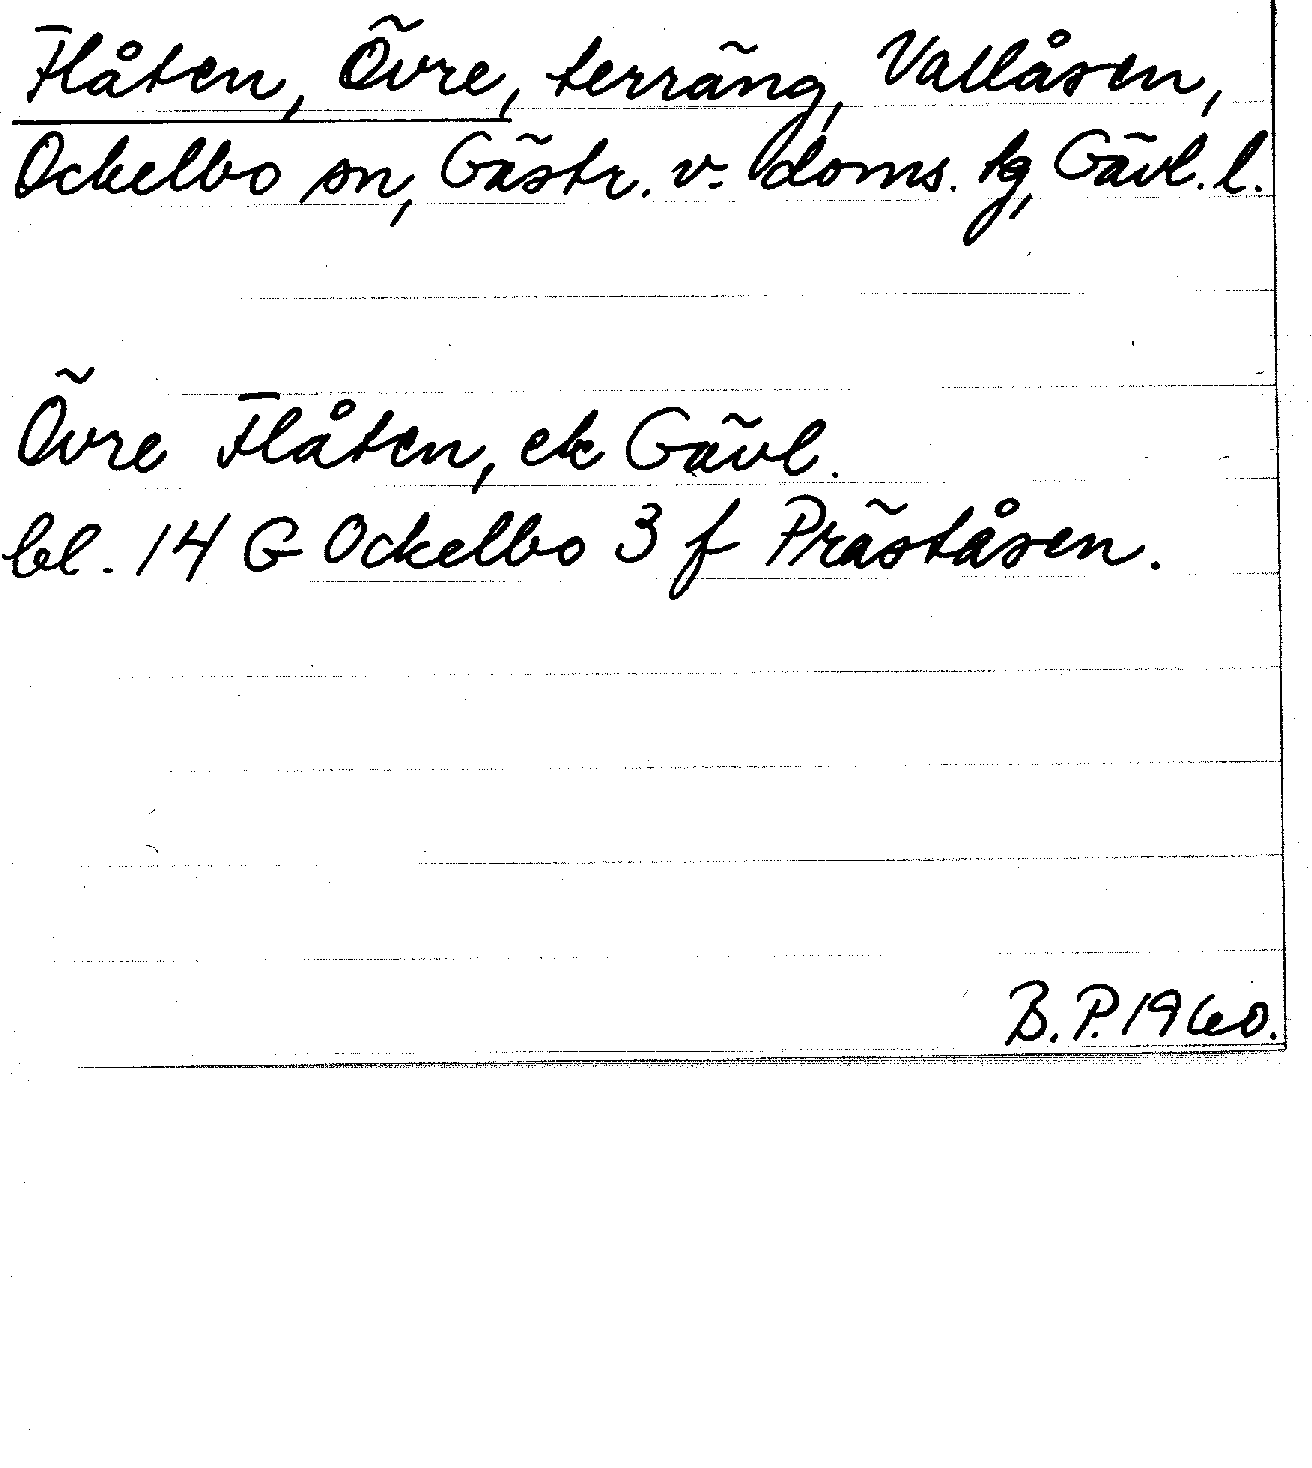 Flåten, Övre, terräng, Vallåsen,
Ockelbo sn, Gästr. v. doms. tg, Gävl. l.
Övre Flåten, ek Gävl.
bl. 14 G Ockelbo 3 f Präståsen.
B.P. 1960.